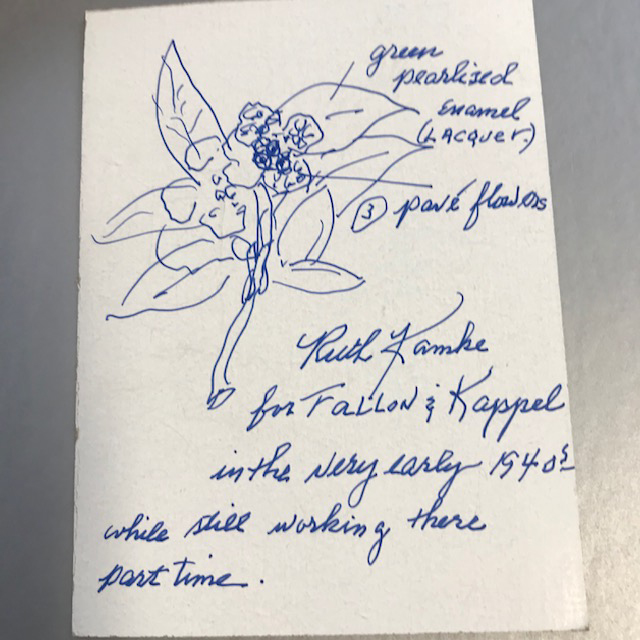 green
pearlized
Enamel
(LACQUER.)
③ pavé flowers
Ruth Kamke
for FALLON & Kappel
in the very early 1940s
while still working there
part time.